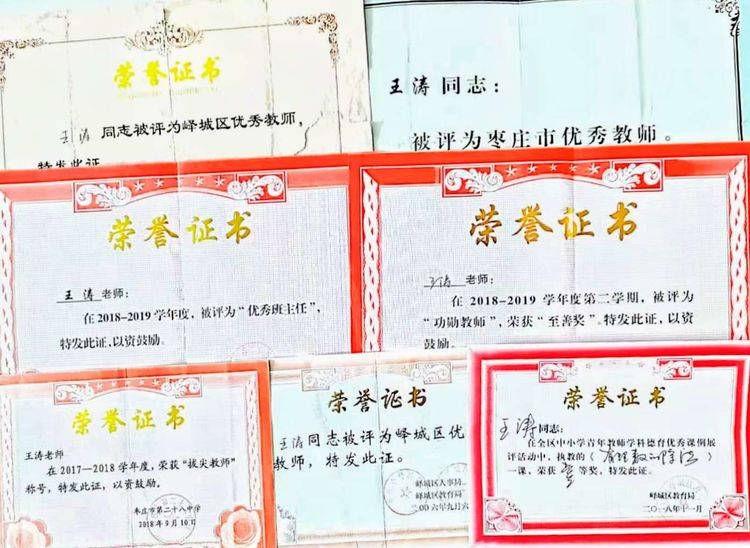 荣誉证书
王涛 同志被评为峄城区优秀教师,
特发此证
王涛同志:
被评为枣庄市优秀教师。
荣誉证书
王涛老师:
在2018-2019学年度,被评为“优秀班主任”,
特发此证,以资鼓励。
荣誉证书
王涛 老师:
在2018-2019学年度第二学期,被评为
“功勋教师”,荣获“至善奖”。特发此证,以资
鼓励。
荣誉证书
王涛老师
在2017-2018学年度,荣获“拔尖教师”
称号,特发此证,以资鼓励。
枣庄市第二十八中学
2018年9月10日
荣誉证书
王涛同志被评为峄城区优
教师,特发此证。
峄城区人事局
峄城区教育局
二00六年九月六
荣誉证书
王涛同志:
在全区中小学青年教师学科德育优秀课例展
评活动中,执教的《有理数的
一课,荣获 壹等奖,特发此证。
峄城区教育局
二〇一八年十一月